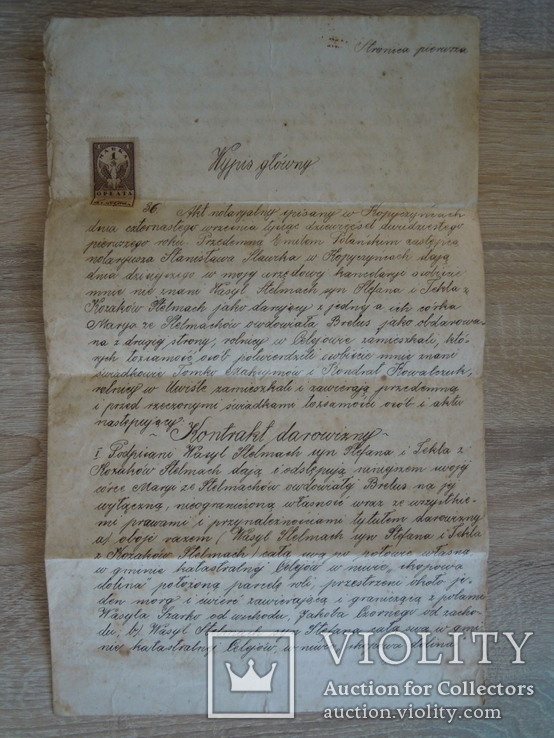 Stronica pierwsza
Wypis główny
MARKA
1
OPŁATA
36. Akt notaryalny spisany w Kopyczyńcach
dnia czternastego września tysiąc dziewięćset dwudziestego
pierwszego roku. Przedemną Emilem zastępcą
notaryusza Stanisława Sławka w Kopyczyńcach dają
dnia dzisiejszego w mojej urzędowej kancelaryi osobiście
mnie nie znani Wasyl Stelmach syn Stefana i Tekla z
Kozaków Stelmach jako darujący z jednej a ich córka
Marya ze Stelmachów owdowiała Brelus jako obdarowa-
na z drugiej strony, rolnicy w Celejowie zamieszkali, któ-
rych tożsamość osób potwierdzili osobiście mnie znani
świadkowie Tomko Maksymów i Kondrat Kowalczuk,
rolnicy w Uwiśle zamieszkali i zawierają przedemną
i przed rzeczonymi świadkami tożsamości osób i aktu
następujący:
Kontrakt darowizny
I Podpisani Wasyl Stelmach syn Stefana i Tekla z
Kozaków Stelmach dają i odstępują niniejszem swojej
córce Maryi ze Stelmachów owdowiałej Brelus na jej
wyłączną, nieograniczoną własność wraz ze wszystkie-
mi prawami i przynależnościami tytułem darowizny
a) oboje razem (Wasyl Stelmach syn Stefana i Tekla
z Kozaków Stelmach) całą swą po połowie własną
w gminie katastralnej Celejów w niwie „chopowa
dolina" położoną parcelę roli, przestrzeni około je-
den morg i ćwierć zawierającą i graniczącą z polami
Wasyla Szarko od wschodu, Jakóba Czornego od zacho-
du, b) Wasyl Stelmach syn Stefana całą swą w gmi-
nie katastralnej Celejów w niwie „chopowa dolina"
VIOLITY
Auction for Collectors
auction.violity.com